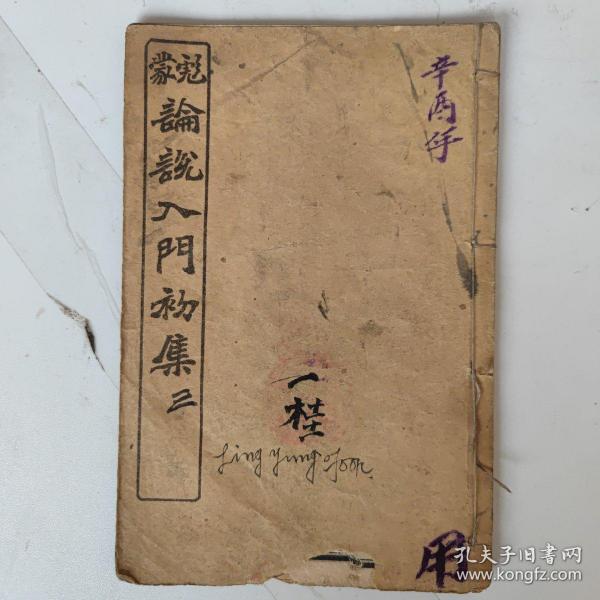 辛酉年
彪蒙
論說入門初集 三
一桂
Ling yung
用
孔夫子旧书网
www.kongfz.com